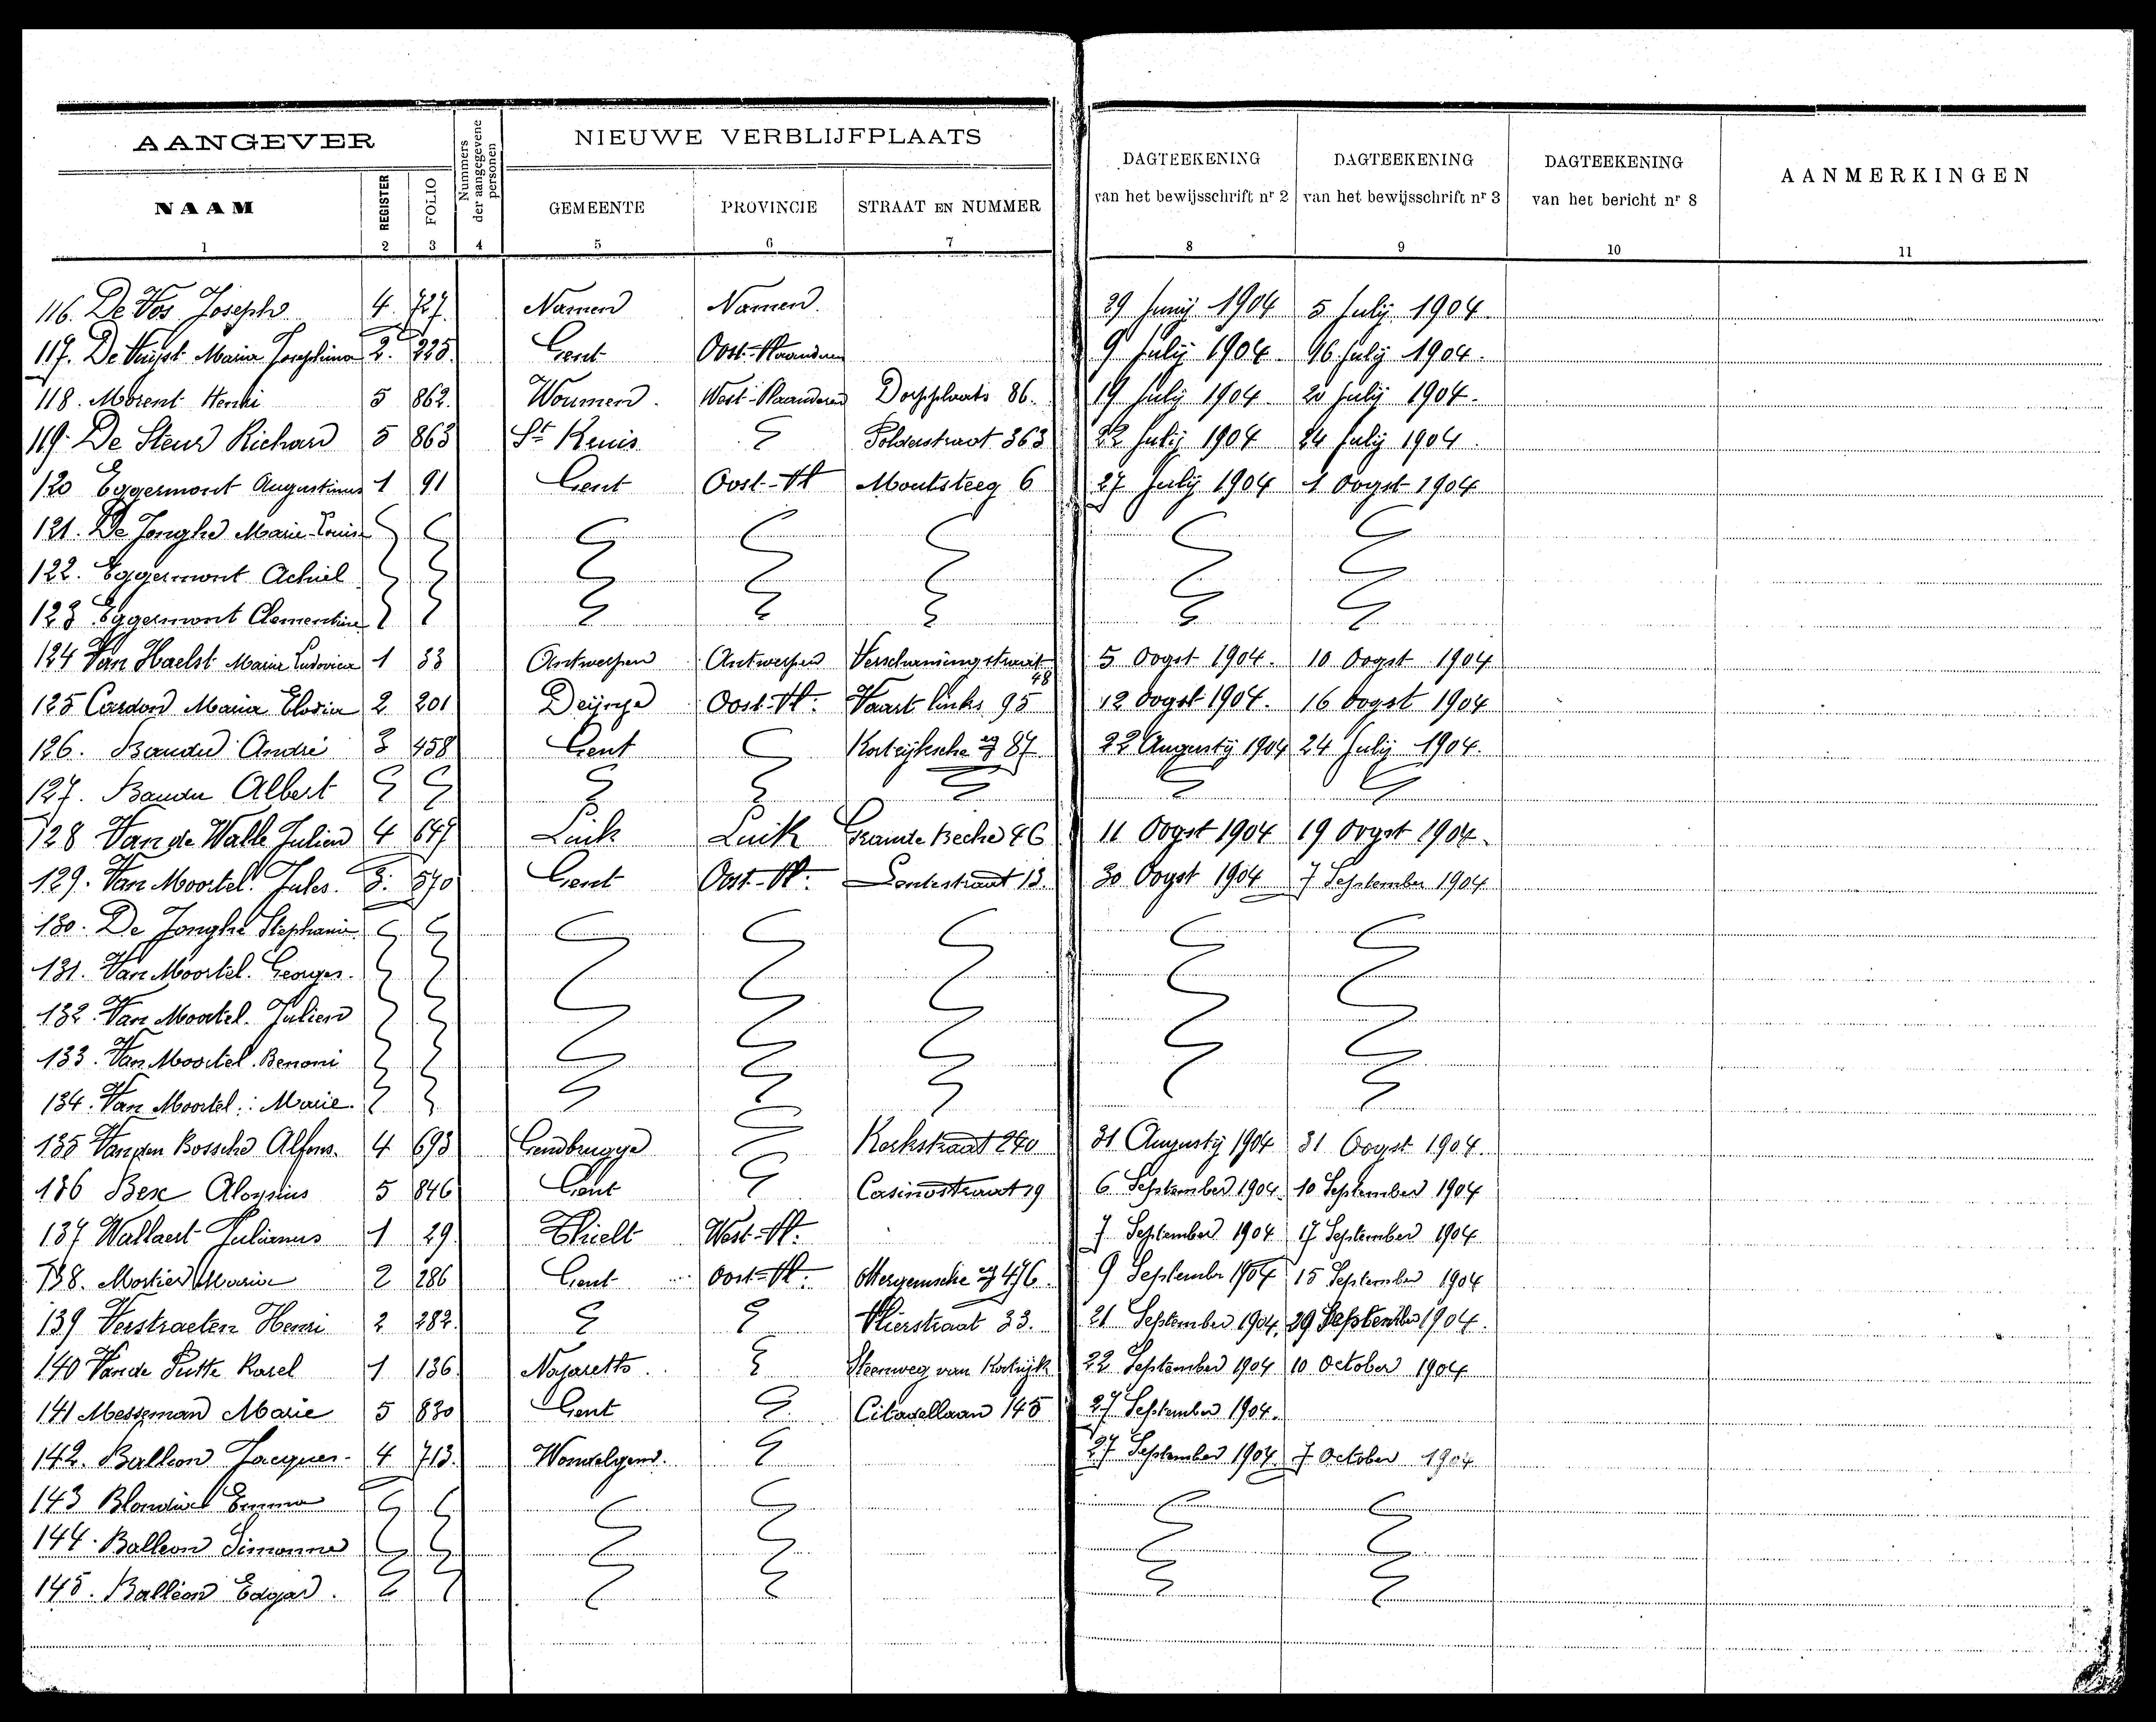 AANGEVER
Nummers der aangegevene personen
NIEUWE VERBLIJFPLAATS
DAGTEEKENING van het bewijsschrift nr 2
DAGTEEKENING van het bewijsschrift nr 3
DAGTEEKENING van het bericht nr 8
AANMERKINGEN
NAAM REGISTER FOLIO GEMEENTE PROVINCIE STRAAT EN NUMMER
1 2 3 4 5 6 7 8 9 10 11
116. De Vos Joseph 4 727. Namen Namen. 29 Junij 1904 5 Julij 1904.
117. De Vuijst Maria Josephina 2. 225. Gent Oost-Vlaanderen 9 Julij 1904. 16 Julij 1904.
118. Morent Henri 5 862. Woumen. West-Vlaanderen Dorpplaats 86. 19 Julij 1904. 20 Julij 1904.
119. De Steur Richard 5 863 St Kruis Polderstraat 363 22 Julij 1904 24 Julij 1904.
120 Eggermont Augustinus 1 91 Gent Oost-Vl Moutsteeg 6 27 Julij 1904 1 Oogst 1904
121. De Jonghe Marie-Louise
122. Eggermont Achiel
123 Eggermont Clementine
124 Van Haelst Maria Ludovica 1 33 Antwerpen Antwerpen 48 5 Oogst 1904. 10 Oogst 1904
125 Cardon Maria Elodia 2 201 Deijnze Oost-Vl. Vaart links 95 12 Oogst 1904. 16 Oogst 1904
126. Baudu André 3 458 Gent Kortrijksche 87 22 Augustij 1904 24 Julij 1904.
127. Baudu Albert
128 Van de Walle Julien 4 647 Luik Luik Grande Beche 46 11 Oogst 1904 19 Oogst 1904.
129. Van Moortel Jules. 3. 570 Gent Oost-Vl. Lentestraat 13. 30 Oogst 1904 7 September 1904
130. De Jonghe Stephanie
131. Van Moortel. Georges.
132. Van Moortel. Julien
133. Van Moortel. Benoni
134. Van Moortel. Marie.
135 Van den Bossche Alfons. 4 693 Gendbrugge Kerkstraat 240 31 Augustij 1904 31 Oogst 1904.
136 Bex Aloysius 5 846 Gent Casinostraat 19 6 September 1904. 10 September 1904
137 Wallaert Julianus 1 29 Thielt West-Vl. 7 September 1904 17 September 1904
138. Mortier Maria 2 286 Gent Oost-Vl. Ottergemsche 476. 9 September 1904 15 September 1904
139 Verstraeten Henri 2 282. Vlierstraat 33. 21 September 1904. 29 September 1904.
140 Van de Putte Karel 1 136. Nazareth. Steenweg van Kortrijk 22 September 1904 10 October 1904
141 Messeman Marie 5 830 Gent Citadellaan 145 27 September 1904.
142. Balleon Jacques. 4 713. Wondelgem. 27 September 1904. 7 October 1904
143 Blondiel Emma
144. Balleon Simonne
145. Balléon Edgar.